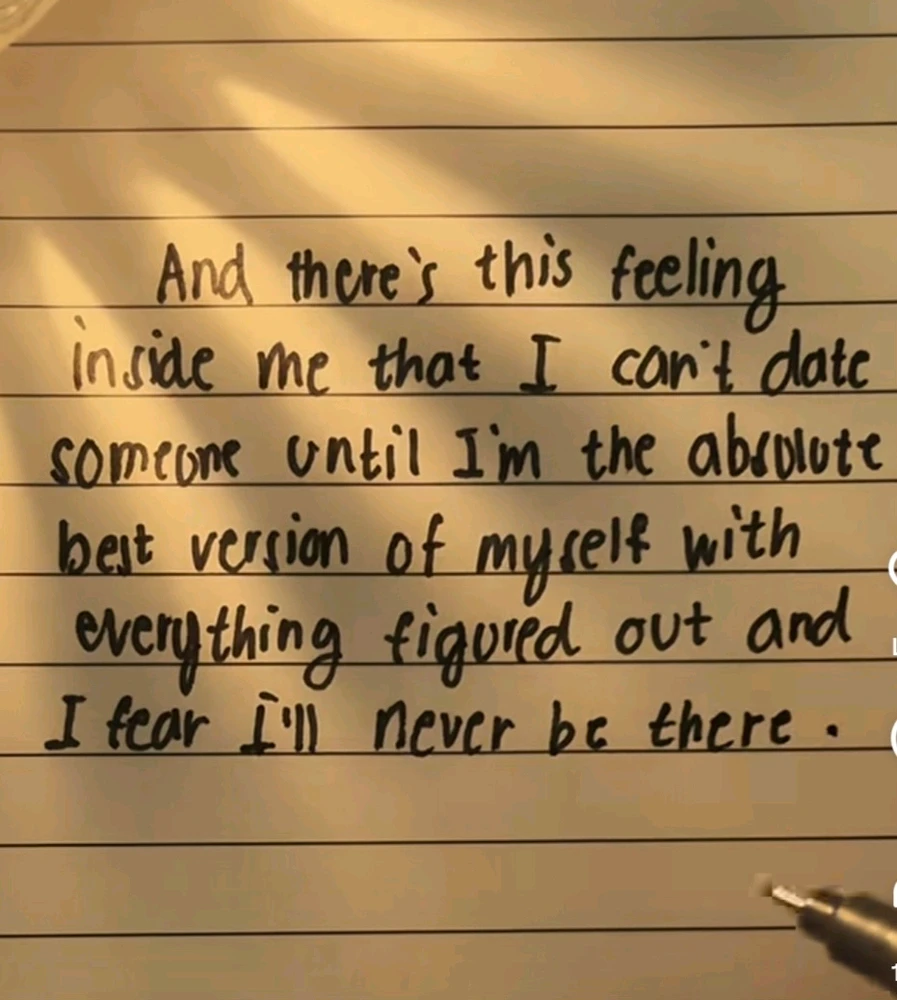 And there's this feeling
inside me that I can't date
someone until I'm the absolute
best version of myself with
everything figured out and
I fear I'll never be there.